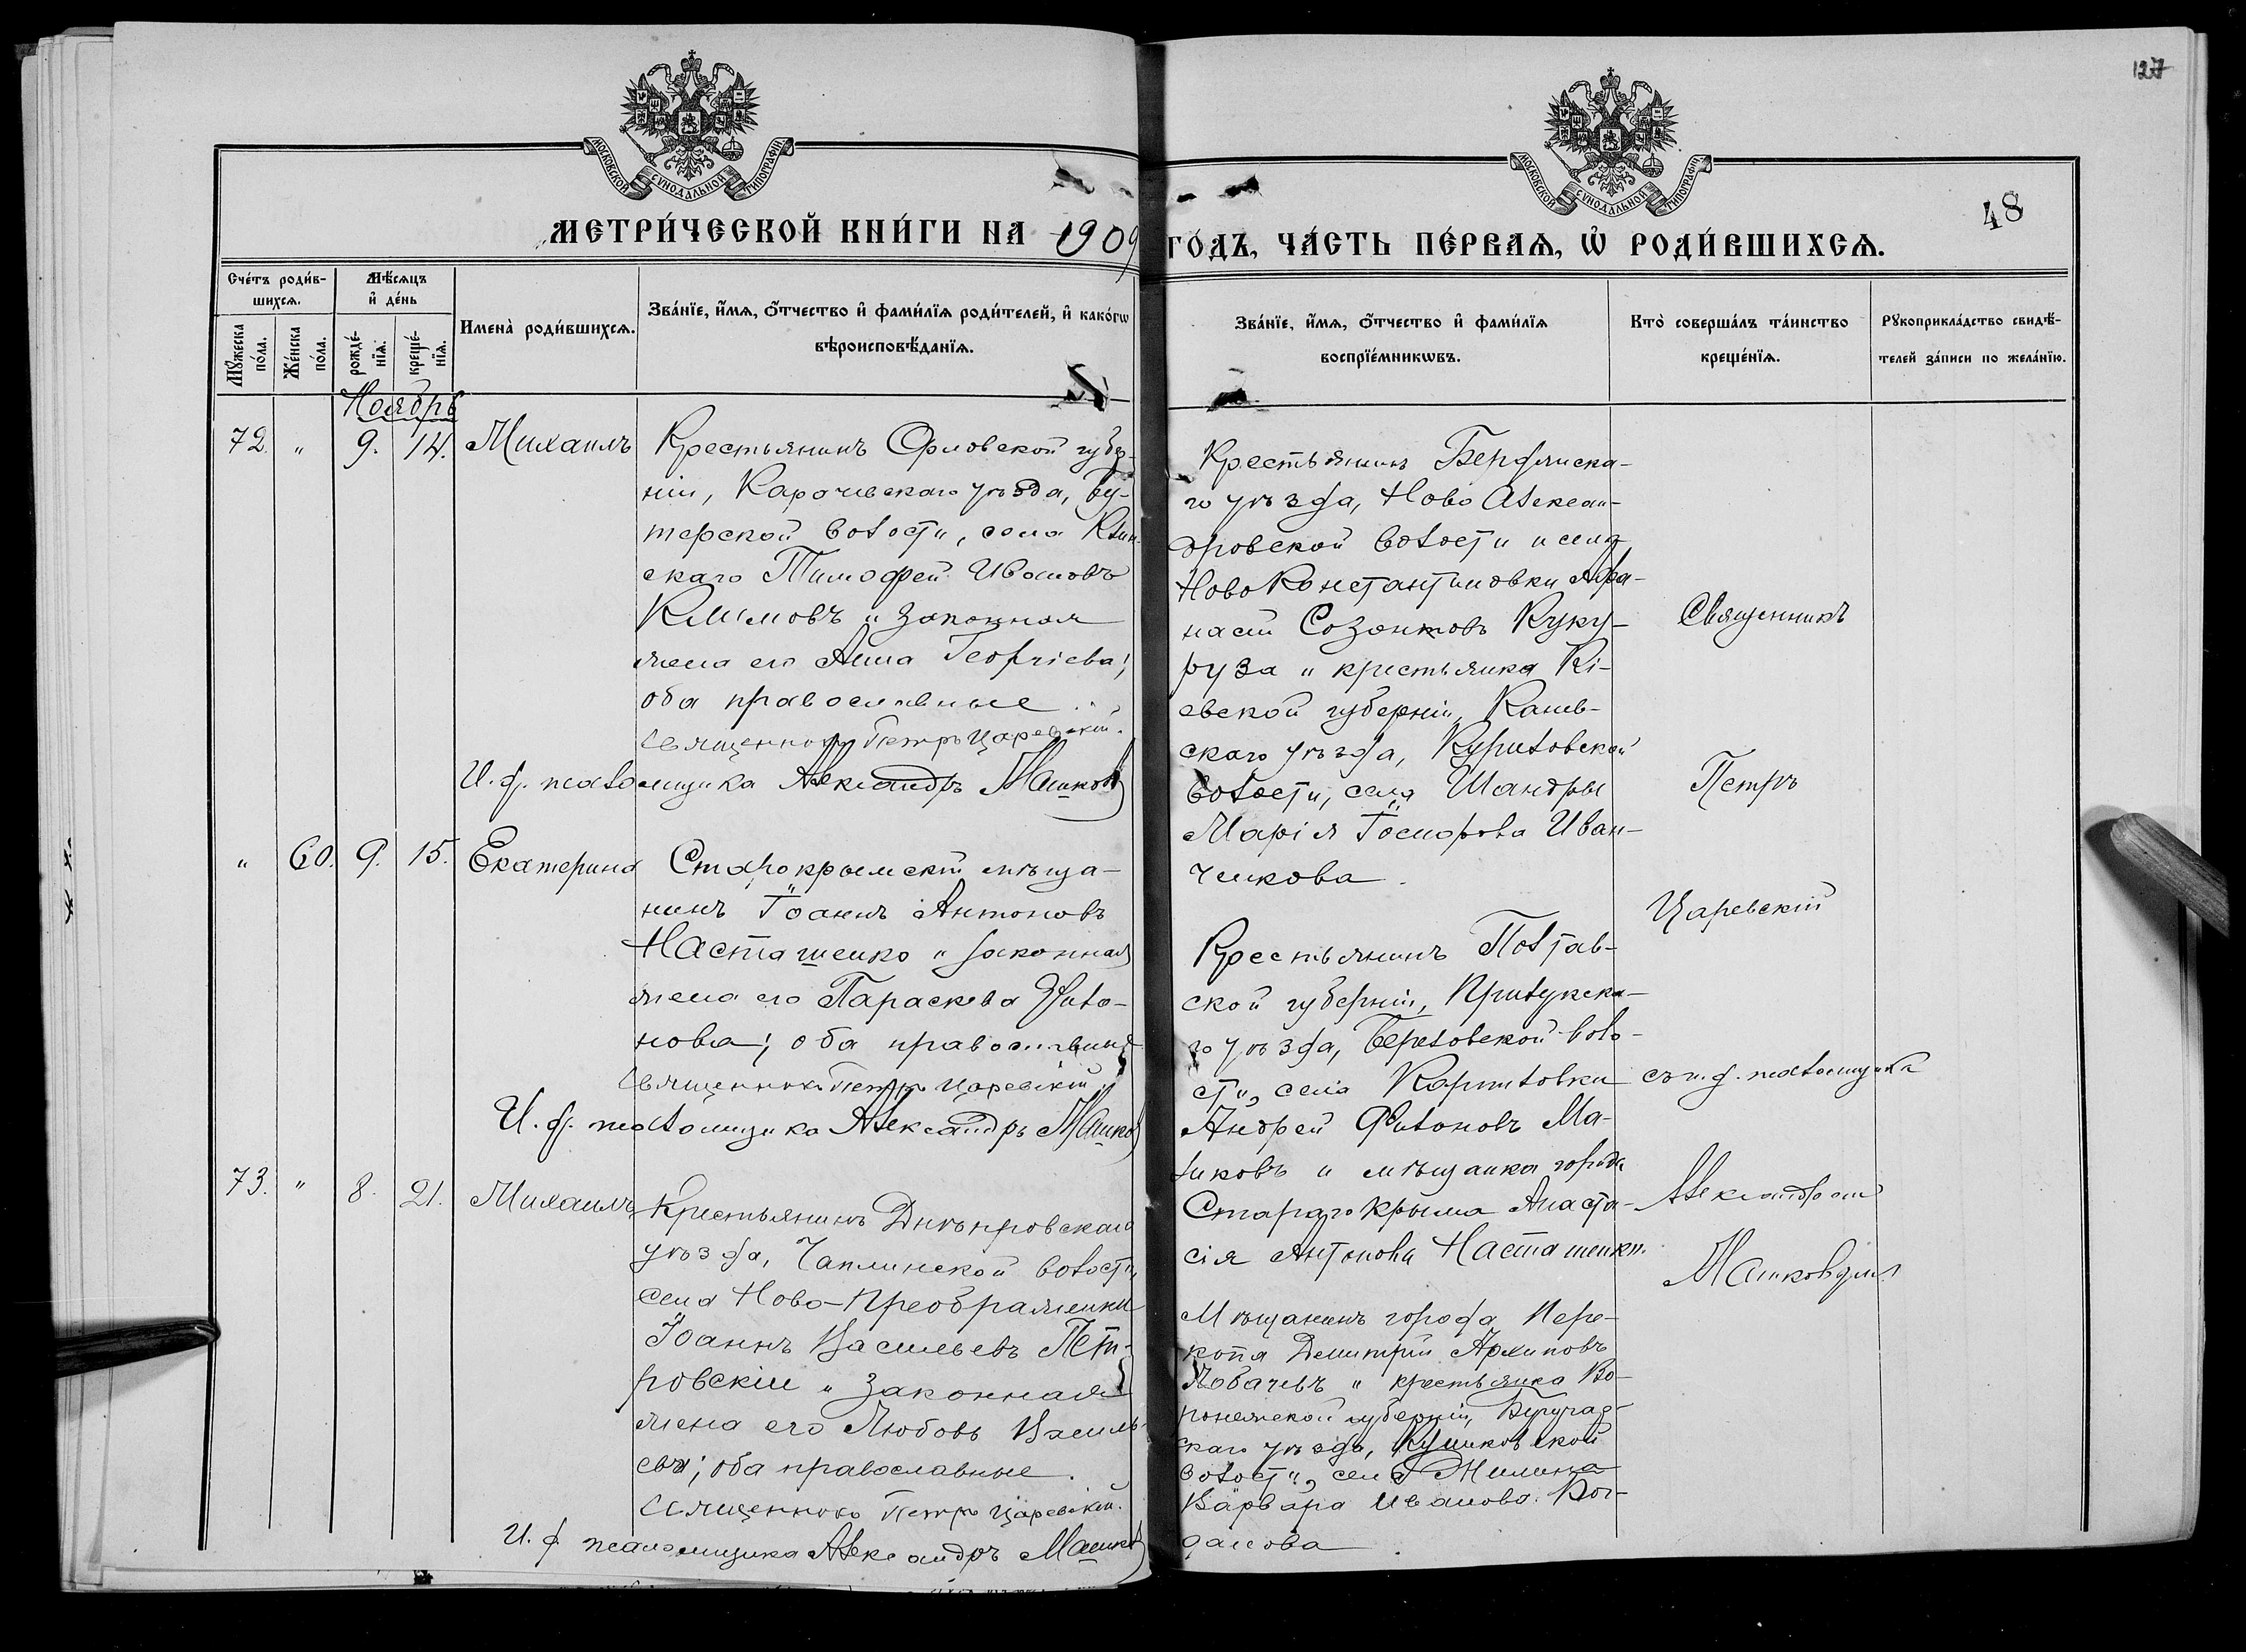 127
48
МОСКОВСКОЙ СУНОДАЛЬНОЙ ТИПОГРАФІИ
МОСКОВСКОЙ СУНОДАЛЬНОЙ ТИПОГРАФІИ
МЕТРИ́ЧЕСКОЙ КНИ́ГИ НА 1909
ГО́ДЪ, ЧА́СТЬ ПЕ́РВАѦ, Ѡ҆ РОДИ́ВШИХСѦ.
Сче́тъ роди́в-
шихсѧ.
Мꙋжеска по́ла.
Же́нска по́ла.
Мѣ́сѧцъ
и҆ де́нь
рожде́-
нїѧ.
креще́-
нїѧ.
Имена̀ роди́вшихсѧ.
Зва́нїе, и҆́мѧ, ѻ҆́тчество и҆ фами́лїѧ роди́телей, и҆ како́гѡ
вѣроисповѣ́данїѧ.
Зва́нїе, и҆́мѧ, ѻ҆́тчество и҆ фами́лїѧ
воспрїе́мникѡвъ.
Кто̀ соверша́лъ та́инство
креще́нїѧ.
Рꙋкоприкла́дство свидѣ́-
телей за́писи по жела́нїю.
Ноябрь
72. " 9. 14. Михаилъ
Крестьянинъ Орловской губер-
ніи, Карачевскаго уѣзда, Бу-
терской волости, села Клин-
скаго Тимофей Ивановъ
Климовъ и законная
жена его Анна Георгіева;
оба православные.
Священникъ Петръ Царевскій.
И. д. псаломщика Александръ Машковъ
Крестьянинъ Бердянска-
го уѣзда, Ново Алексан-
дровской волости и села
Ново Константиновки Афа-
насій Созонтовъ Куку-
руза и крестьянка Кі-
евской губерніи, Канев-
скаго уѣзда, Куриловской
волости, села Шандры
Марія Іосифова Иван-
чикова.
Священникъ
Петръ
Царевскій
съ и. д. псаломщика
Александромъ
Машковымъ
" 60. 9. 15. Екатерина
Старокрымскій мѣща-
нинъ Іоаннъ Антоновъ
Насташенко и законная
жена его Параскева Фило-
нова; оба православные
Священникъ Петръ Царевскій
И. д. псаломщика Александръ Машковъ
Крестьянинъ Полтав-
ской губерніи, Прилукска-
го уѣзда, Березовской воло-
сти, села Карпиловки
Андрей Филоновъ Ма-
ликовъ и мѣщанка города
Стараго Крыма Анаста-
сія Антонова Насташенко.
73. " 8. 21. Михаилъ
Крестьянинъ Днѣпровскаго
уѣзда, Чаплинской волости,
села Ново-Преображенки
Іоаннъ Васильевъ Пет-
ровскій и законная
жена его Любовь Василь-
ева; оба православные.
Священникъ Петръ Царевскій.
И. д. псаломщика Александръ Машковъ
Мѣщанинъ города Пере-
копа Димитрій Архиповъ
и крестьянка Во-
ронежской губерніи,
скаго уѣзда,
волости, села
Варвара Иванова Бог-
данова.